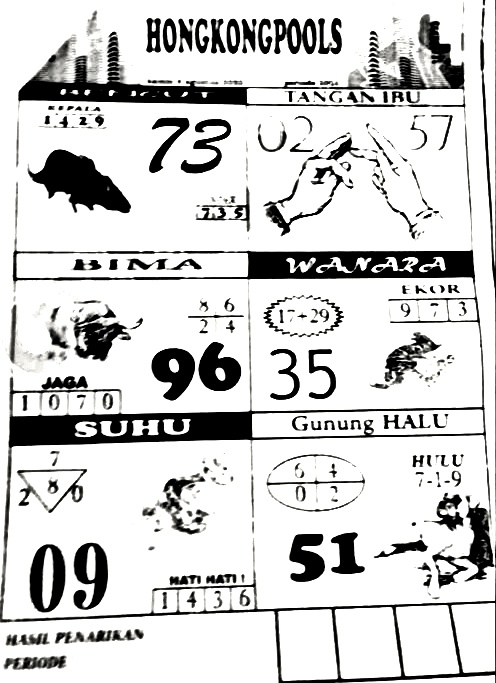 HONGKONGPOOLS
TANGAN IBU
KEPALA
1 4 2 9
73
7 3 5
02
57
BIMA
8 6
2 4
96
JAGA
1 0 7 0
WANARA
EKOR
9 7 3
17+29
35
SUHU
7
2 8 0
09
HATI HATI !
1 4 3 6
Gunung HALU
6 4
0 2
HULU
7-1-9
51
HASIL PENARIKAN
PERIODE